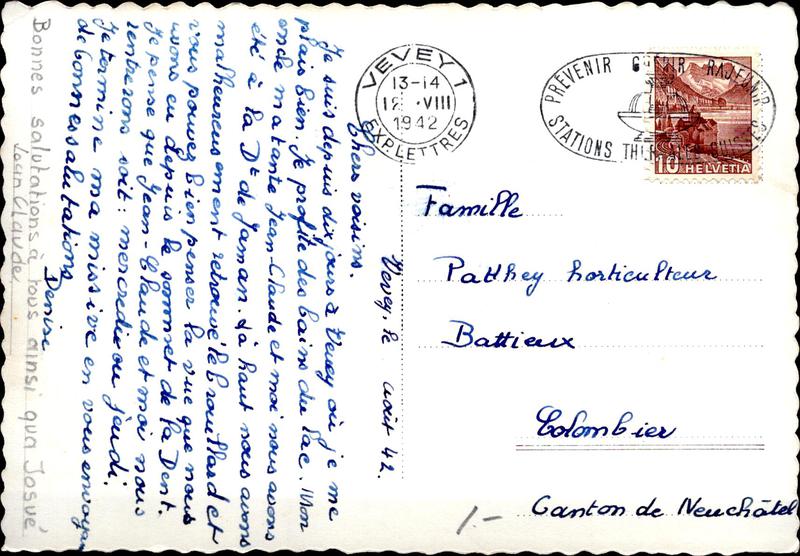 VEVEY 1
13-14
12. VIII
1942
EXP. LETTRES
PRÉVENIR GUÉRIR RAJEUNIR
STATIONS THERMALES SUISSES
10 HELVETIA
Vevey, le août 42.
Chers voisins.
Je suis depuis dix jours à Vevey où je me
plais bien. Je profite des bains du lac. Mon
oncle ma tante Jean-Claude et moi nous avons
été à la Dt de Jaman. Là haut nous avons
malheureusement retrouvé le brouillard et
vous pouvez bien penser la vue que nous
avons eu depuis le sommet de la Dent.
Je pense que Jean-Claude et moi nous
rentrerons soit: mercredi ou jeudi.
Je termine ma missive en vous envoyan
de bonnes salutations
Denise
Bonnes salutations à tous ainsi qua Josué
Jean Claude
Famille
Patthey horticulteur
Battieux
Colombier
Canton de Neuchâtel
1.-